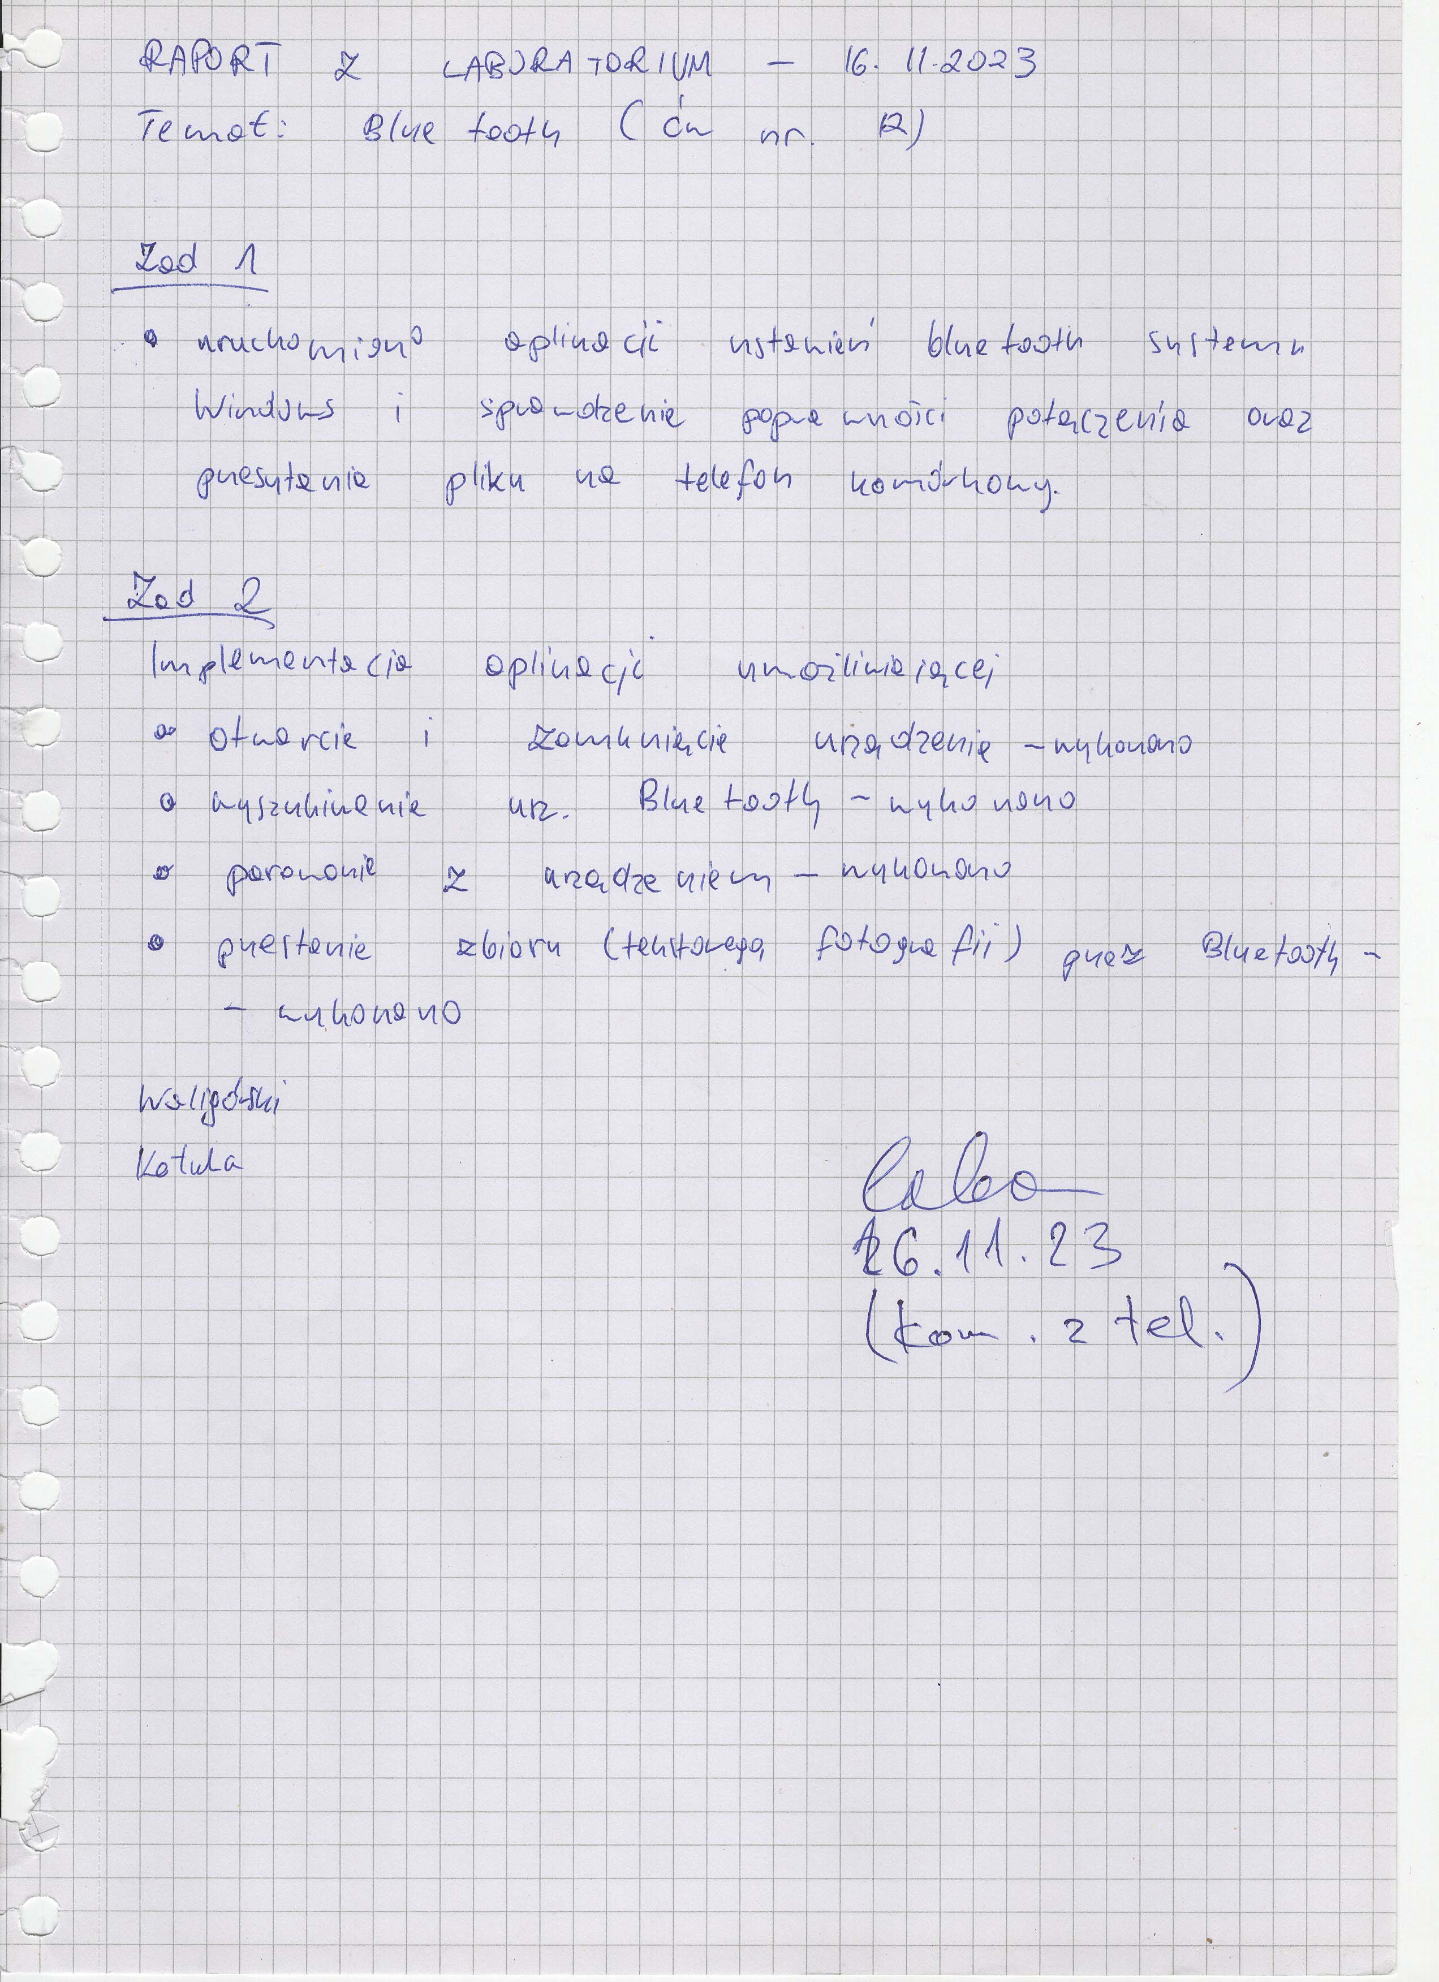 RAPORT Z LABORATORIUM – 16.11.2023
Temat: Bluetooth (ćw nr. 12)
Zad 1
• uruchomiono aplikacji ustawień bluetooth systemu
Windows i sprawdzenie poprawności połączenia oraz
przesyłania pliku na telefon komórkowy.
Zad 2
Implementacja aplikacji umożliwiającej
• otwarcie i zamknięcie urządzenie – wykonano
• wyszukiwanie urz. Bluetooth – wykonano
• parowanie z urządzeniem – wykonano
• przesłanie zbioru (tekstowego, fotografii) przez Bluetooth –
– wykonano
Waligórski
Kotula
26.11.23
(kom. z tel.)